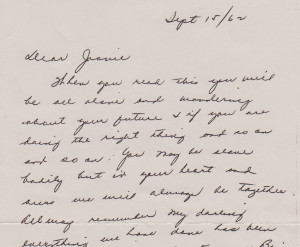 Sept 15/62
Dear Joanie
When you read this you will
be all alone and wondering
about your future & if you are
doing the right thing and so on
and so on. You may be alone
bodily but in your heart and
mine we will always be together.
Always remember my darling
everything we have done has been